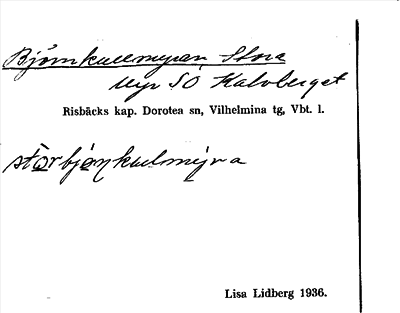 Björnkullmyran, Stora
Myr SO Kalvberget
Risbäcks kap. Dorotea sn, Vilhelmina tg, Vbt. l.
stòrbjön̥kulmỳra
Lisa Lidberg 1936.